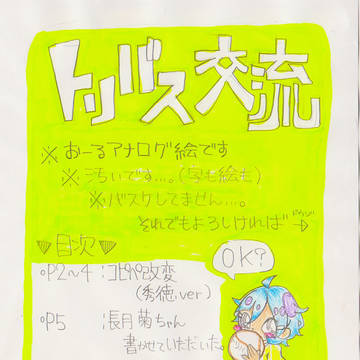 トリバス交流
※おーるアナログ絵です
※汚いです…。(字も絵も)
※バスケしてません…。
それでもよろしければ
▼目次▼
OK?
○P2~4:コピペ改変
(秀徳.ver)
○P5 :長月菊ちゃん
書かせていただいた。